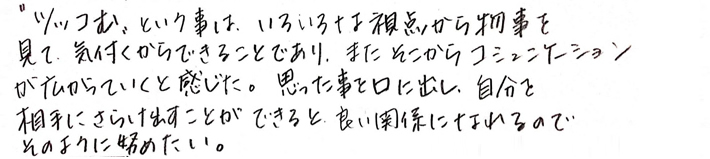 "ツッコむ"という事は、いろいろな視点から物事を
見て、気付くからできることであり、またそこからコミュニケーション
が広がっていくと感じた。思った事を口に出し、自分を
相手にさらけ出すことができると、良い関係になれるので
そのように努めたい。